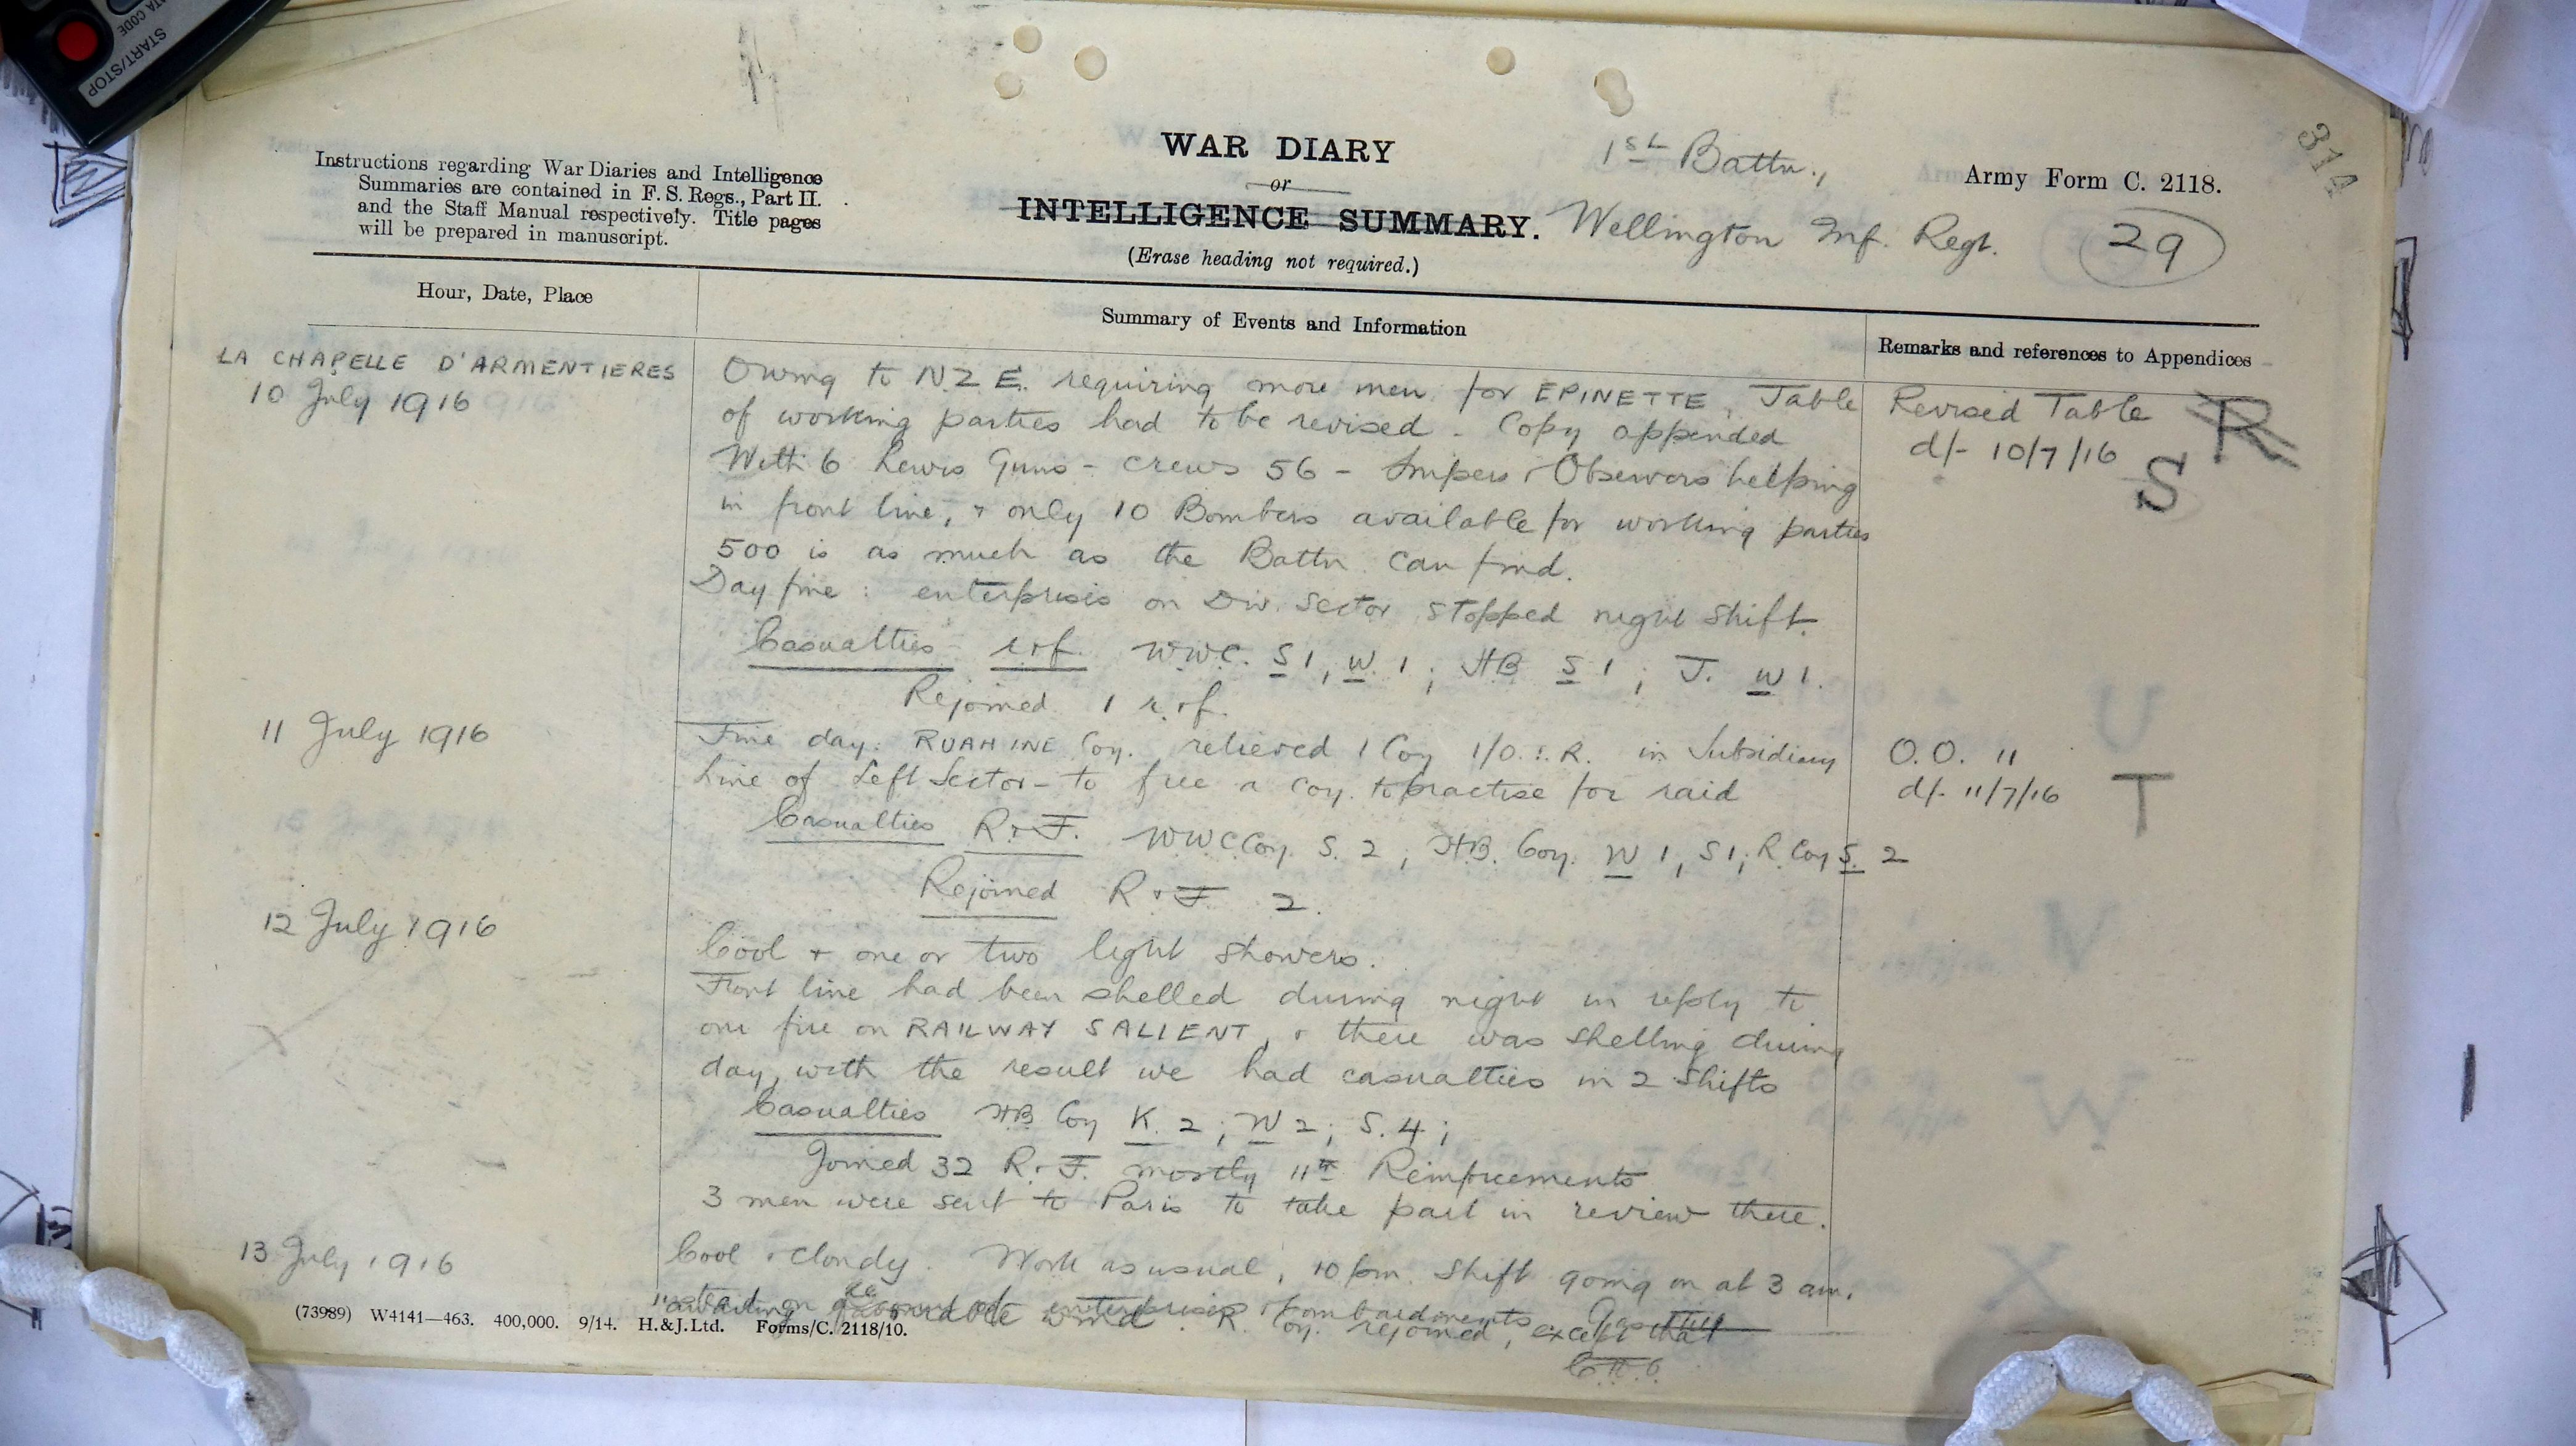 START/STOP
DATA CODE
314
Instructions regarding War Diaries and Intelligence
Summaries are contained in F. S. Regs., Part II.
and the Staff Manual respectively. Title pages
will be prepared in manuscript.
WAR DIARY
or
INTELLIGENCE SUMMARY.
(Erase heading not required.)
1st Battn.,
Wellington Inf. Regt.
Army Form C. 2118.
29
Hour, Date, Place
Summary of Events and Information
Remarks and references to Appendices
LA CHAPELLE D'ARMENTIERES
10 July 1916
Owing to N.Z.E. requiring more men for EPINETTE, Table
of working parties had to be revised - Copy appended
With 6 Lewis Guns - crews 56 - Snipers & Observers helping
in front line, & only 10 Bombers available for working parties
500 is as much as the Battn can find.
Day fine : enterprises on Div. Sector stopped night shift.
Casualties - r&f. WWC. S 1, W. 1; HB S 1; T. W 1.
Rejoined 1 r&f.
Revised Table R
d/- 10/7/16 S
11 July 1916
Fine day: RUAHINE Coy. relieved 1 Coy 1/O.I.R. in Subsidiary
Line of Left Sector - to free a coy. to practise for raid
Casualties R&F. WWC Coy S. 2; H.B. Coy. W 1, S 1; R. Coy S. 2
Rejoined R&F 2.
O.O. 11
d/- 11/7/16 T
12 July 1916
Cool & one or two light showers.
Front line had been shelled during night in reply to
our fire on RAILWAY SALIENT, & there was shelling during
day, with the result we had casualties in 2 shifts
Casualties HB Coy K. 2; W 2; S. 4;
Joined 32 R&F. mostly 11th Reinforcements
3 men were sent to Paris to take part in review there.
13 July 1916
Cool & cloudy. Work as usual, 10 pm. shift going on at 3 am.
R. Coy. rejoined, except that
(73989) W4141—463. 400,000. 9/14. H.&J.Ltd. Forms/C. 2118/10.